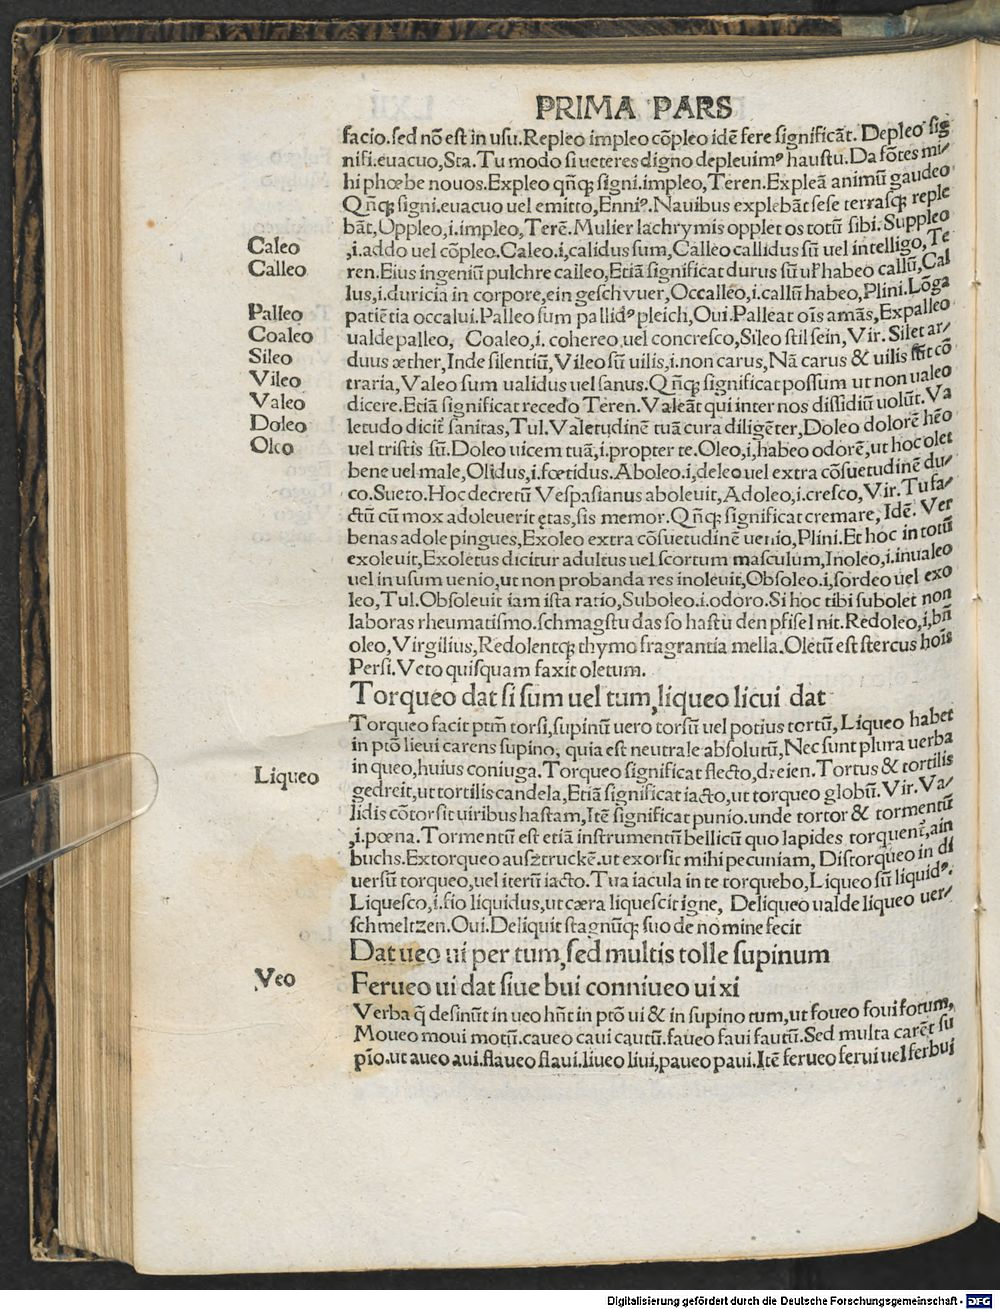 PRIMA PARS
facio.sed nõ est in usu.Repleo impleo cõpleo idẽ fere significãt. Depleo sig
nifi.euacuo,Sta.Tu modo si ueteres digno depleuimꝰ haustu.Da fõtes mi-
hi phœbe nouos.Expleo qñq; signi.impleo,Teren.Expleã animũ gaudeo
Qñq; signi.euacuo uel emitto,Enniꝰ.Nauibus explebãt sese terrasq; reple
bãt,Oppleo,i.impleo,Terẽ.Mulier lachrymis opplet os totũ sibi.Suppleo
Caleo ,i.addo uel cõpleo.Caleo.i,calidus sum,Calleo callidus sũ uel intelligo,Te
Calleo ren.Eius ingeniũ pulchre calleo,Etiã significat durus sũ uꝉ habeo callũ,Cal
lus,i.duricia in corpore,ein geschvuer,Occalleo,i.callũ habeo,Plini.Lõga
Palleo patiẽtia occalui.Palleo sum pallidꝰ pleich,Oui.Palleat oĩs amãs,Expalleo
Coaleo ualde palleo, Coaleo,i. cohereo uel concresco,Sileo stil sein,Vir.Silet ar-
Sileo duus æther,Inde silentiũ,Vileo sũ uilis,i.non carus,Nã carus & uilis sũt cõ
Vileo traria,Valeo sum ualidus uel sanus.Qñq; significat possum ut non ualeo
Valeo dicere.Etiã significat recedo Teren.Valeãt qui inter nos dissidiũ uolũt.Va
Doleo letudo dicit̃ sanitas,Tul.Valetudinẽ tuã cura diligẽter,Doleo dolorẽ hẽo
Oleo uel tristis sũ.Doleo uicem tuã,i.propter te.Oleo,i,habeo odorẽ,ut hoc olet
bene uel male,Olidus,i.fœtidus.Aboleo.i,deleo uel extra cõsuetudinẽ du-
co.Sueto.Hoc decretũ Vespasianus aboleuit,Adoleo,i.cresco,Vir.Tu fa-
ctũ cũ mox adoleuerit ętas,sis memor.Qñq; significat cremare,Idẽ.Ver
benas adole pingues,Exoleo extra cõsuetudinẽ uenio,Plini.Et hoc in totũ
exoleuit,Exoletus dicitur adultus uel scortum masculum,Inoleo,i.inualeo
uel in usum uenio,ut non probanda res inoleuit,Obsoleo.i,sordeo uel exo
leo,Tul.Obsoleuit iam ista ratio,Suboleo.i.odoro.Si hoc tibi subolet non
laboras rheumatismo.schmagstu das so hastu den pfisel nit.Redoleo,i,bñ
oleo,Virgilius,Redolentq; thymo fragrantia mella.Oletũ est stercus hoĩs
Persi.Veto quisquam faxit oletum.
Torqueo dat si sum uel tum,liqueo licui dat
Torqueo facit ptm̃ torsi,supinũ uero torsũ uel potius tortũ,Liqueo habet
in ptõ licui carens supino, quia est neutrale absolutũ,Nec sunt plura uerba
Liqueo in queo,huius coniuga.Torqueo significat flecto,dreien.Tortus & tortilis
gedreit,ut tortilis candela,Etiã significat iacto,ut torqueo globũ.Vir.Va-
lidis cõtorsit uiribus hastam,Itẽ significat punio.unde tortor & tormentũ
,i.pœna.Tormentũ est etiã instrumentũ bellicũ quo lapides torquent̃,ain
buchs.Extorqueo ausztruckẽ.ut exorsit mihi pecuniam, Distorqueo in di
uersũ torqueo,uel iterũ iacto.Tua iacula in te torquebo,Liqueo sũ liquidꝰ.
Liquesco,i.fio liquidus,ut cæra liquescit igne, Deliqueo ualde liqueo uer-
schmeltzen.Oui.Deliquit stagnũq; suo de nomine fecit
Dat ueo ui per tum,sed multis tolle supinum
Veo Ferueo ui dat siue bui conniueo ui xi
Verba q̃ desinũt in ueo hñt in ptõ ui & in supino tum,ut foueo foui fotum,
Moueo moui motũ.caueo caui cautũ.faueo faui fautũ.Sed multa carẽt su
pĩo.ut aueo aui.flaueo flaui.liueo liui,paueo paui.Itẽ ferueo ferui uel ferbui
Digitalisierung gefördert durch die Deutsche Forschungsgemeinschaft - DFG